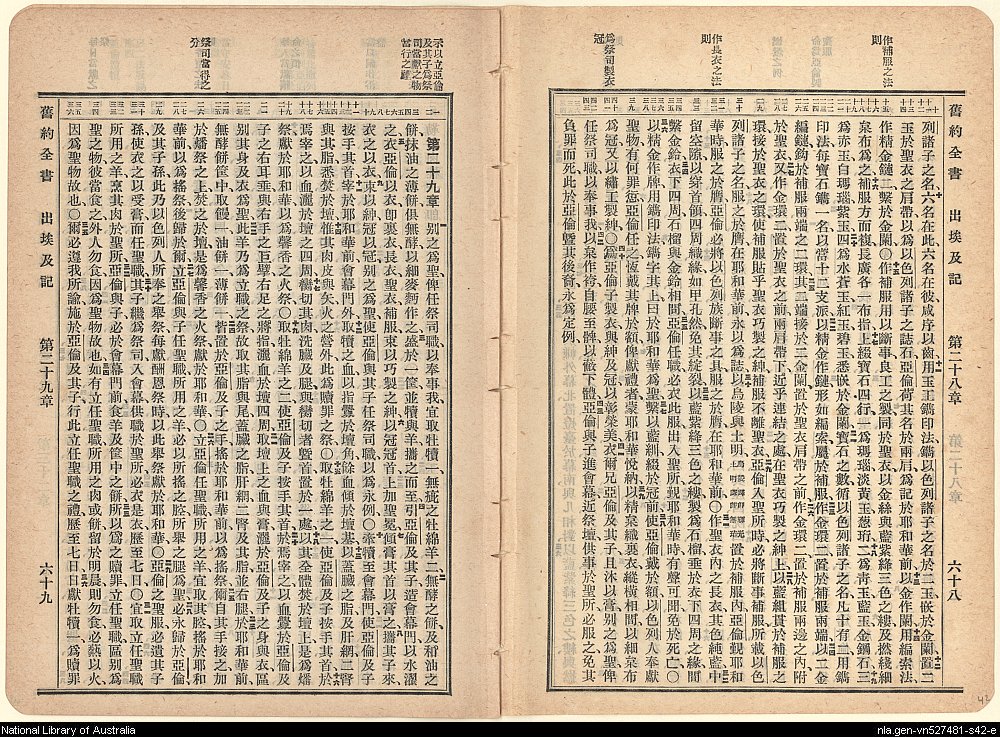 作補服之法
則
作長衣之法
則
為祭司製衣
冠
舊約全書 出埃及記 第二十八章 六十八
列諸子之名六名在此六名在彼咸序以齒用玉工鐫印法鐫以色列諸子之名於二玉嵌於金闌置二
玉於聖衣之肩帶以為以色列諸子之誌石亞倫荷其名於兩肩為記於耶和華前以金作闌用編索法
作精金鏈二繫於金闌〇作補服用以斷事良工之製同於聖衣以金絲與藍紫絳三色之縷及撚綫細
枲布為之補服方而複長廣各一布指上綴寶石四行一為瑪瑙淡黃玉葱珩二為青玉藍玉金鋼石三
為赤玉白瑪瑙紫玉四為水蒼玉紅玉碧玉悉嵌於金闌寶石之數循以色列諸子之名凡十有二用鐫
印法每寶石鐫一名以當十二支派以精金作鏈形如編索屬於補服作金環二置於補服兩端以二金
編鏈鈎於補服兩端之二環其二端接於二金闌置於聖衣肩帶之前作金環二置於補服兩邊之內附
於聖衣又作金環二置於聖衣之前兩肩帶下近乎連結之處在聖衣巧製之紳上以藍組貫於補服之
環接於聖衣之環使補服貼乎聖衣巧製之紳補服不離聖衣亞倫入聖所時必將斷事補服所載以色
列諸子之名服之於膺在耶和華前永以為誌以烏陵與土明置於補服內亞倫覲耶和
華時服之於膺亞倫必將以色列族斷事之具服之於膺在耶和華前〇作聖衣內之長衣其色純藍中
留空隙以穿首領四周織緣如甲孔然免其綻裂以藍紫絳三色之縷製為石榴垂於衣下四周之緣間
繫金鈴衣下四周石榴與金鈴相間亞倫任職必衣此服出入聖所覲耶和華時有聲可聞免於死亡〇
以精金作牌用鐫印法鐫字其上曰於耶和華為聖繫以藍組綴於冠前使亞倫戴於額以色列人奉獻
聖物有何罪愆亞倫任之恆戴其牌於額俾獻禮者蒙耶和華悅納以精枲織裏衣縱橫相間以細枲布
為冠又以繡工製紳〇為亞倫子製衣與紳及冠以彰榮美衣爾兄亞倫及子且沐以膏別之為聖俾
任祭司職以奉事我以枲作袴自腰至髀以蔽下體亞倫與子進會幕近祭壇供事於聖所必服之免其
負罪而死此於亞倫暨其後裔永為定例
示以立亞倫
及其子為祭
司當獻之物
當行之禮
祭司當得之
分
舊約全書 出埃及記 第二十九章 六十九
第二十九章 別之為聖俾任祭司職以奉事我宜取牡犢一無疵之牡綿羊二無酵之餅及和油之
餅抹油之薄餅俱無酵以細麥麪作之盛於一筐並犢與羊攜之而至引亞倫及其子造會幕門以水濯
之衣亞倫以衣卽裏衣長衣聖衣補服束以巧製之紳以冠冠首上加聖冕傾膏其首以膏之攜其子來
衣之以衣束以紳冠以冠別之為聖使亞倫與其子任祭司職以為永例〇牽犢至會幕門使亞倫及子
按手其首宰於耶和華前會幕門外取犢之血以指釁於壇角餘血傾於壇基以蓋臟之脂及肝網二腎
與其脂悉焚於壇惟其肉皮與矢火之營外此為贖罪之祭〇取牡綿羊之一使亞倫及子按手其首於
焉宰之以血灑於壇之四周臠切其肉洗臟及腿與臠切者暨首置於一處以其全體焚於壇上是為燔
祭獻於耶和華以為馨香之火祭〇取牡綿羊之二使亞倫及子按手其首於焉宰之以血釁於亞倫及
子之右耳垂與右手之巨擘右足之將指灑血於壇四周取壇上之血與膏灑於亞倫及子之身與衣區
別其身及衣為聖此羊乃為立職之祭故取其脂與尾蓋臟之脂肝網二腎及其脂並右腿於耶和華前
無酵餅筐中取饅一油餅一薄餅一皆置於亞倫及子之手搖於耶和華前以為搖祭爾自其手接之加
於燔祭之上焚之於壇是為馨香之火祭獻於耶和華〇立亞倫任聖職所用之羊宜取其腔搖於耶和
華前以為搖祭後歸於爾立亞倫與子任聖職所用之羊必以所搖之腔所舉之腿為聖必永歸於亞倫
及其子孫此乃以色列人所奉之舉祭每獻酬恩祭時以此舉祭獻於耶和華〇亞倫之聖服必遺其子
孫使衣以受膏而任聖職其子繼為祭司入會幕供事於聖所必衣是衣歷至七日〇宜取立任聖職
所用之羊烹其肉於聖所亞倫與子必於會幕門前食羊及筐中之餅以所為之贖罪立任聖職區別為
聖之物彼當食之外人勿食因為聖物故也如有立任聖職所用之肉或餅留於明晨則勿食必爇以火
因為聖物故也〇爾必遵我所諭施於亞倫及其子行此立任聖職之禮歷至七日日獻牡犢一為贖罪
National Library of Australia
nla.gen-vn527481-s42-e